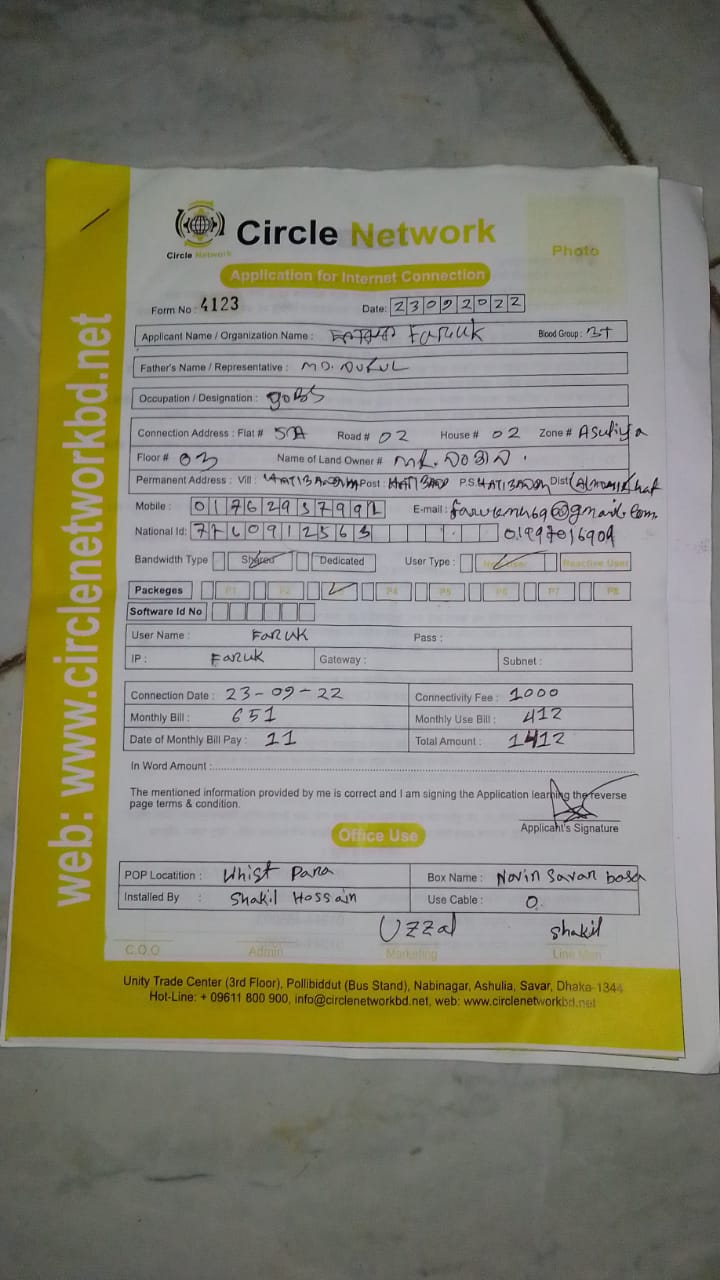 web: www.circlenetworkbd.net
Circle Network
Circle Network
Photo
Application for Internet Connection
Form No : 4123 Date: 23092022
Applicant Name / Organization Name : Faruk Blood Group : B+
Father's Name / Representative : MD. NURUL
Occupation / Designation : JOBS
Connection Address : Flat # 5A Road # 02 House # 02 Zone # Asuliya
Floor # 03 Name of Land Owner # MR.
Permanent Address : Vill : HATIBANDHA Post : P.S. HATIBANDH Dist
Mobile : 01762937991 E-mail : @gmail.com
National Id: 7760912563 01997016904
Bandwidth Type Shared Dedicated User Type : New User Reactive User
Packeges P1 P2 P3 P4 P5 P6 P7 P8
Software Id No
User Name : Faruk Pass :
IP : Faruk Gateway : Subnet :
Connection Date : 23-09-22 Connectivity Fee : 1000
Monthly Bill : 651 Monthly Use Bill : 412
Date of Monthly Bill Pay : 11 Total Amount : 1412
In Word Amount :
The mentioned information provided by me is correct and I am signing the Application learning the reverse
page terms & condition.
Applicant's Signature
Office Use
POP Locatition : Whist Para Box Name : Novin Savar basa
Installed By : Shakil Hossain Use Cable : 0
Uzzal Shakil
C.O.O Admin Marketing Line Man
Unity Trade Center (3rd Floor), Pollibiddut (Bus Stand), Nabinagar, Ashulia, Savar, Dhaka-1344
Hot-Line: + 09611 800 900, info@circlenetworkbd.net, web: www.circlenetworkbd.net